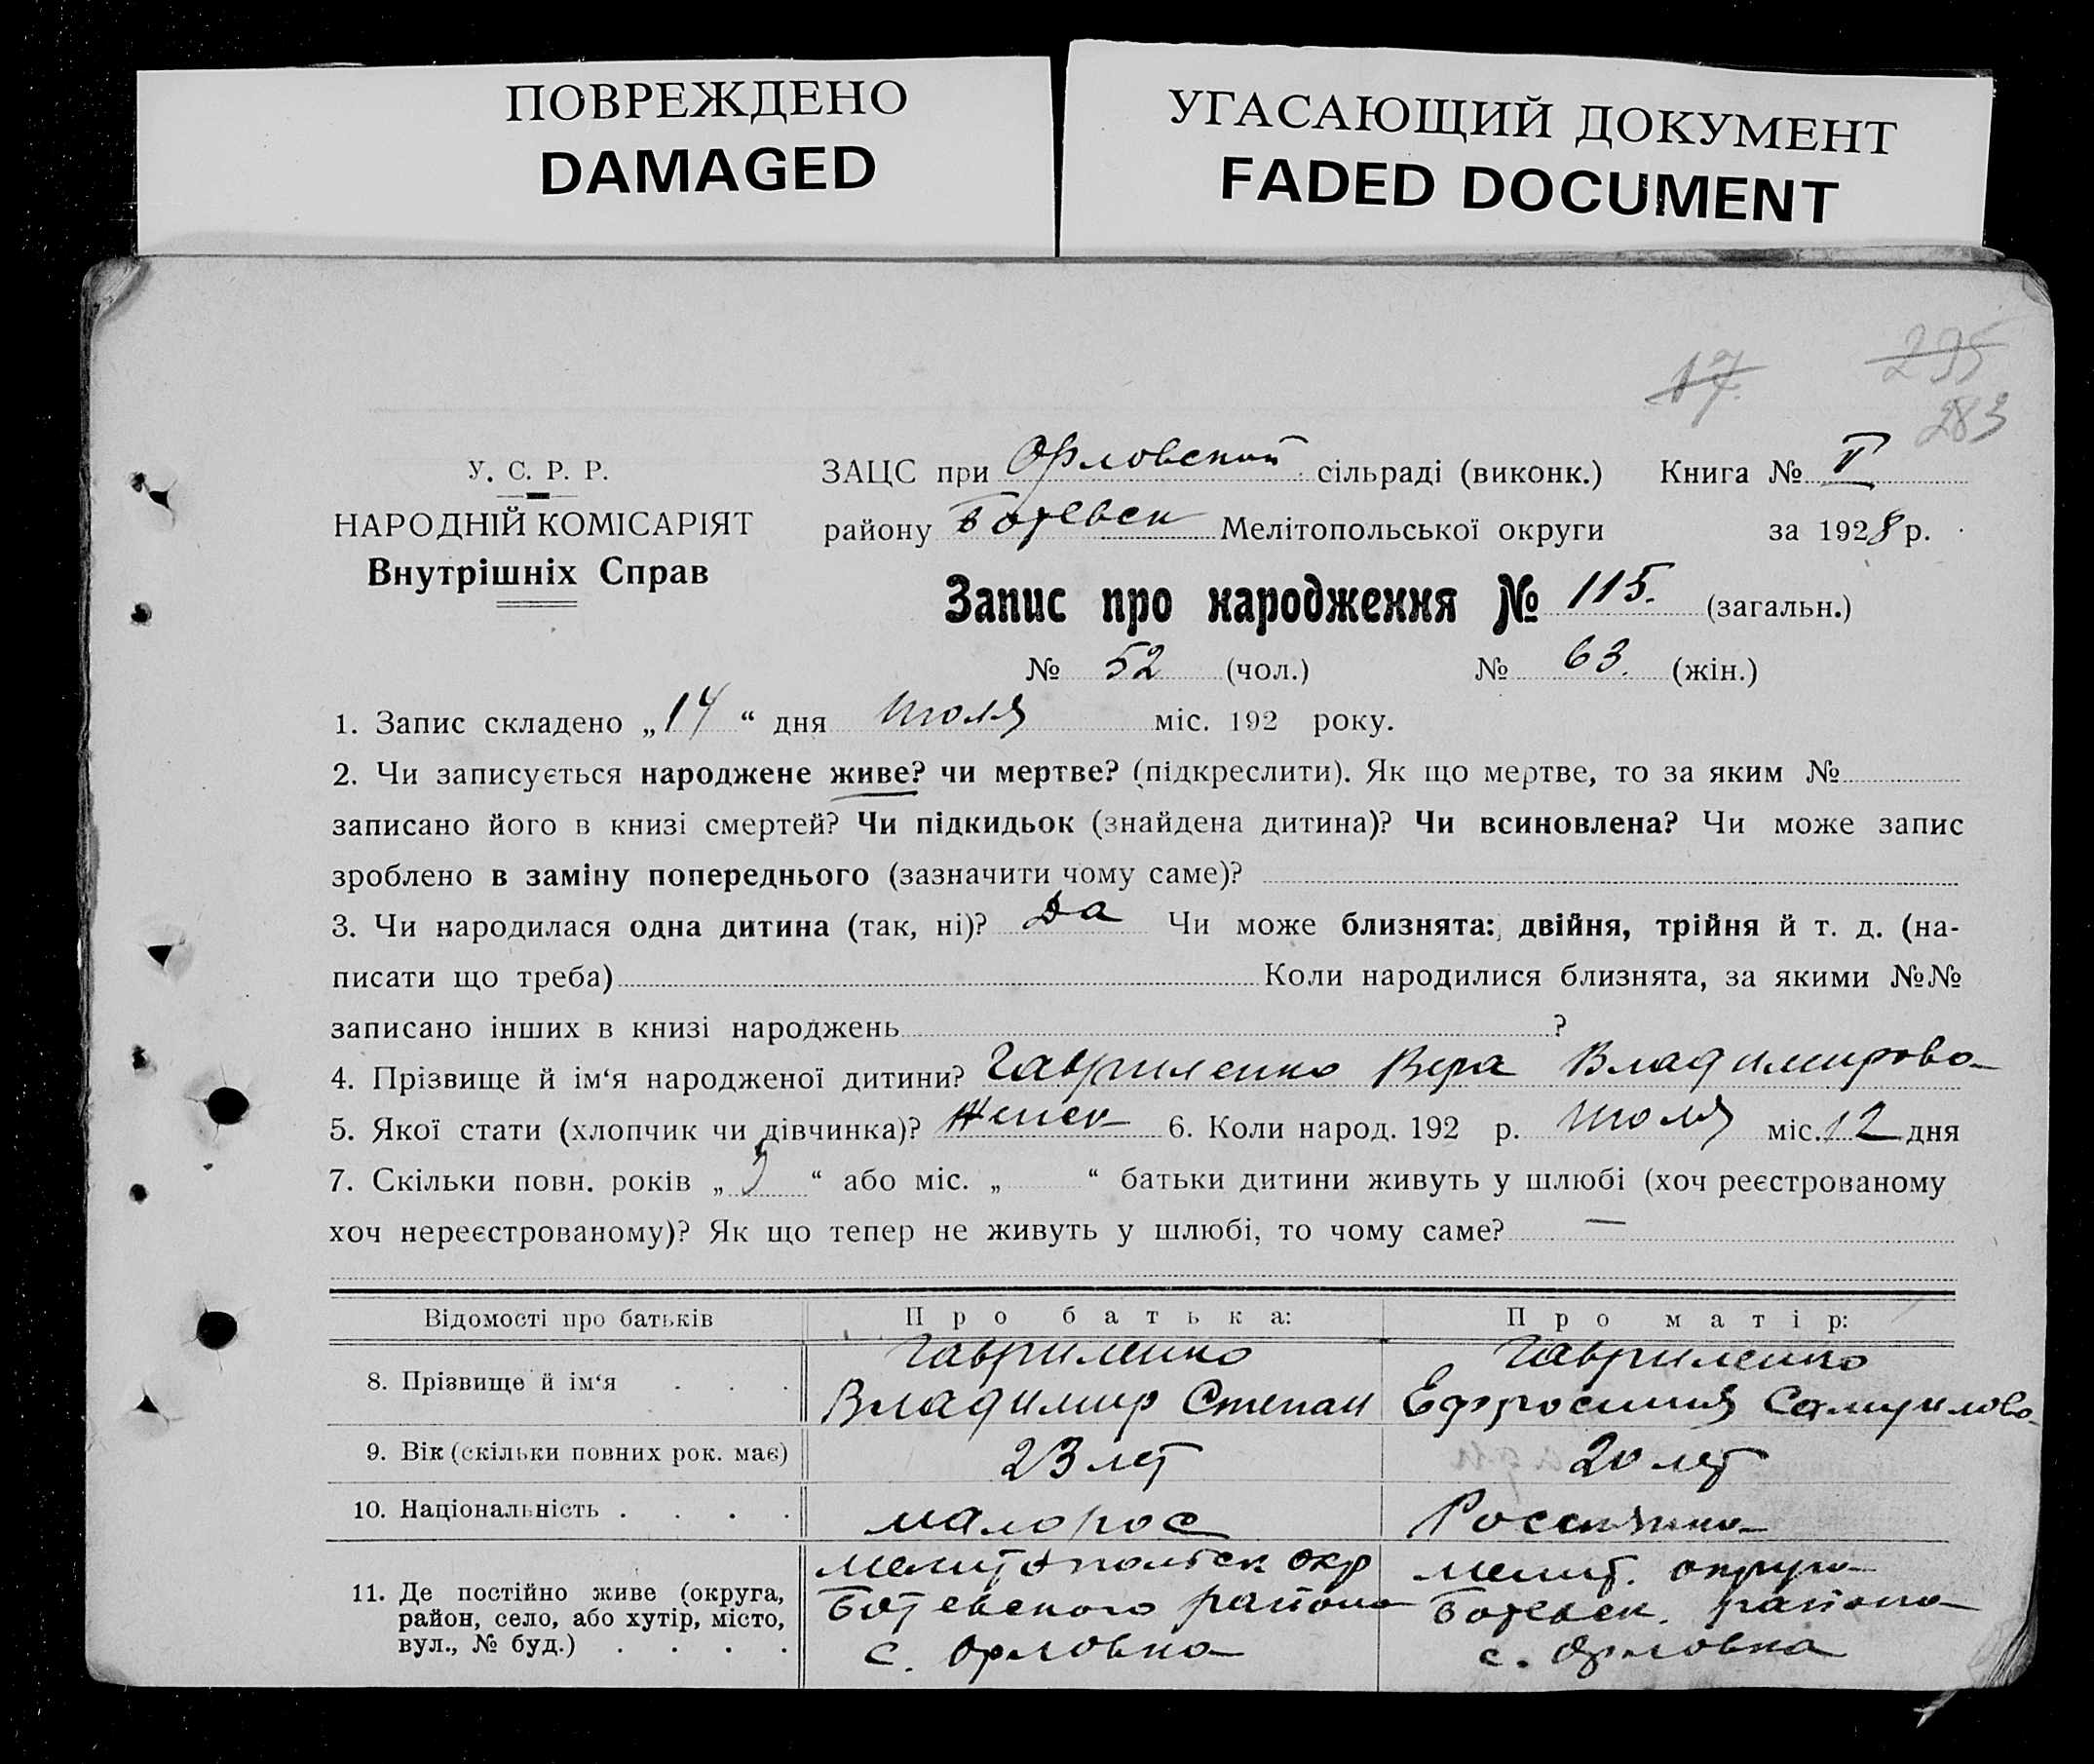 ПОВРЕЖДЕНО
DAMAGED
УГАСАЮЩИЙ ДОКУМЕНТ
FADED DOCUMENT
17 295
283
У. С. Р. Р.
НАРОДНІЙ КОМІСАРІЯТ
Внутрішніх Справ
ЗАЦС при Орловский сільраді (виконк.) Книга №
району Ботевск Мелітопольської округи за 1928 р.
Запис про народження № 115. (загальн.)
№ 52 (чол.) № 63. (жін.)
1. Запис складено „14“ дня июля міс. 192 року.
2. Чи записується народжене живе? чи мертве? (підкреслити). Як що мертве, то за яким №
записано його в книзі смертей? Чи підкидьок (знайдена дитина)? Чи всиновлена? Чи може запис
зроблено в заміну попереднього (зазначити чому саме)?
3. Чи народилася одна дитина (так, ні)? Да Чи може близнята: двійня, трійня й т. д. (на-
писати що треба) Коли народилися близнята, за якими №№
записано інших в книзі народжень ?
4. Прізвище й ім‘я народженої дитини? Гавриленко Вера Владимирова
5. Якої стати (хлопчик чи дівчинка)? Женск 6. Коли народ. 192 р. июля міс. 12 дня
7. Скільки повн. років „ “ або міс. „ “ батьки дитини живуть у шлюбі (хоч реєстрованому
хоч нереєстрованому)? Як що тепер не живуть у шлюбі, то чому саме? —
Відомості про батьків Про батька: Про матір:
8. Прізвище й ім‘я . . . Гавриленко Владимир Степан Гавриленко Ефросиния Самуилова
9. Вік (скільки повних рок. має) 23 лет 20 лет
10. Національність . . . . малорос Россиянка
11. Де постійно живе (округа,
район, село, або хутір, місто,
вул., № буд.) . . . .
Мелитопольск окр
Ботевского района
с. Орловка
Мелит. округа
Ботевск. района
с. Орловка